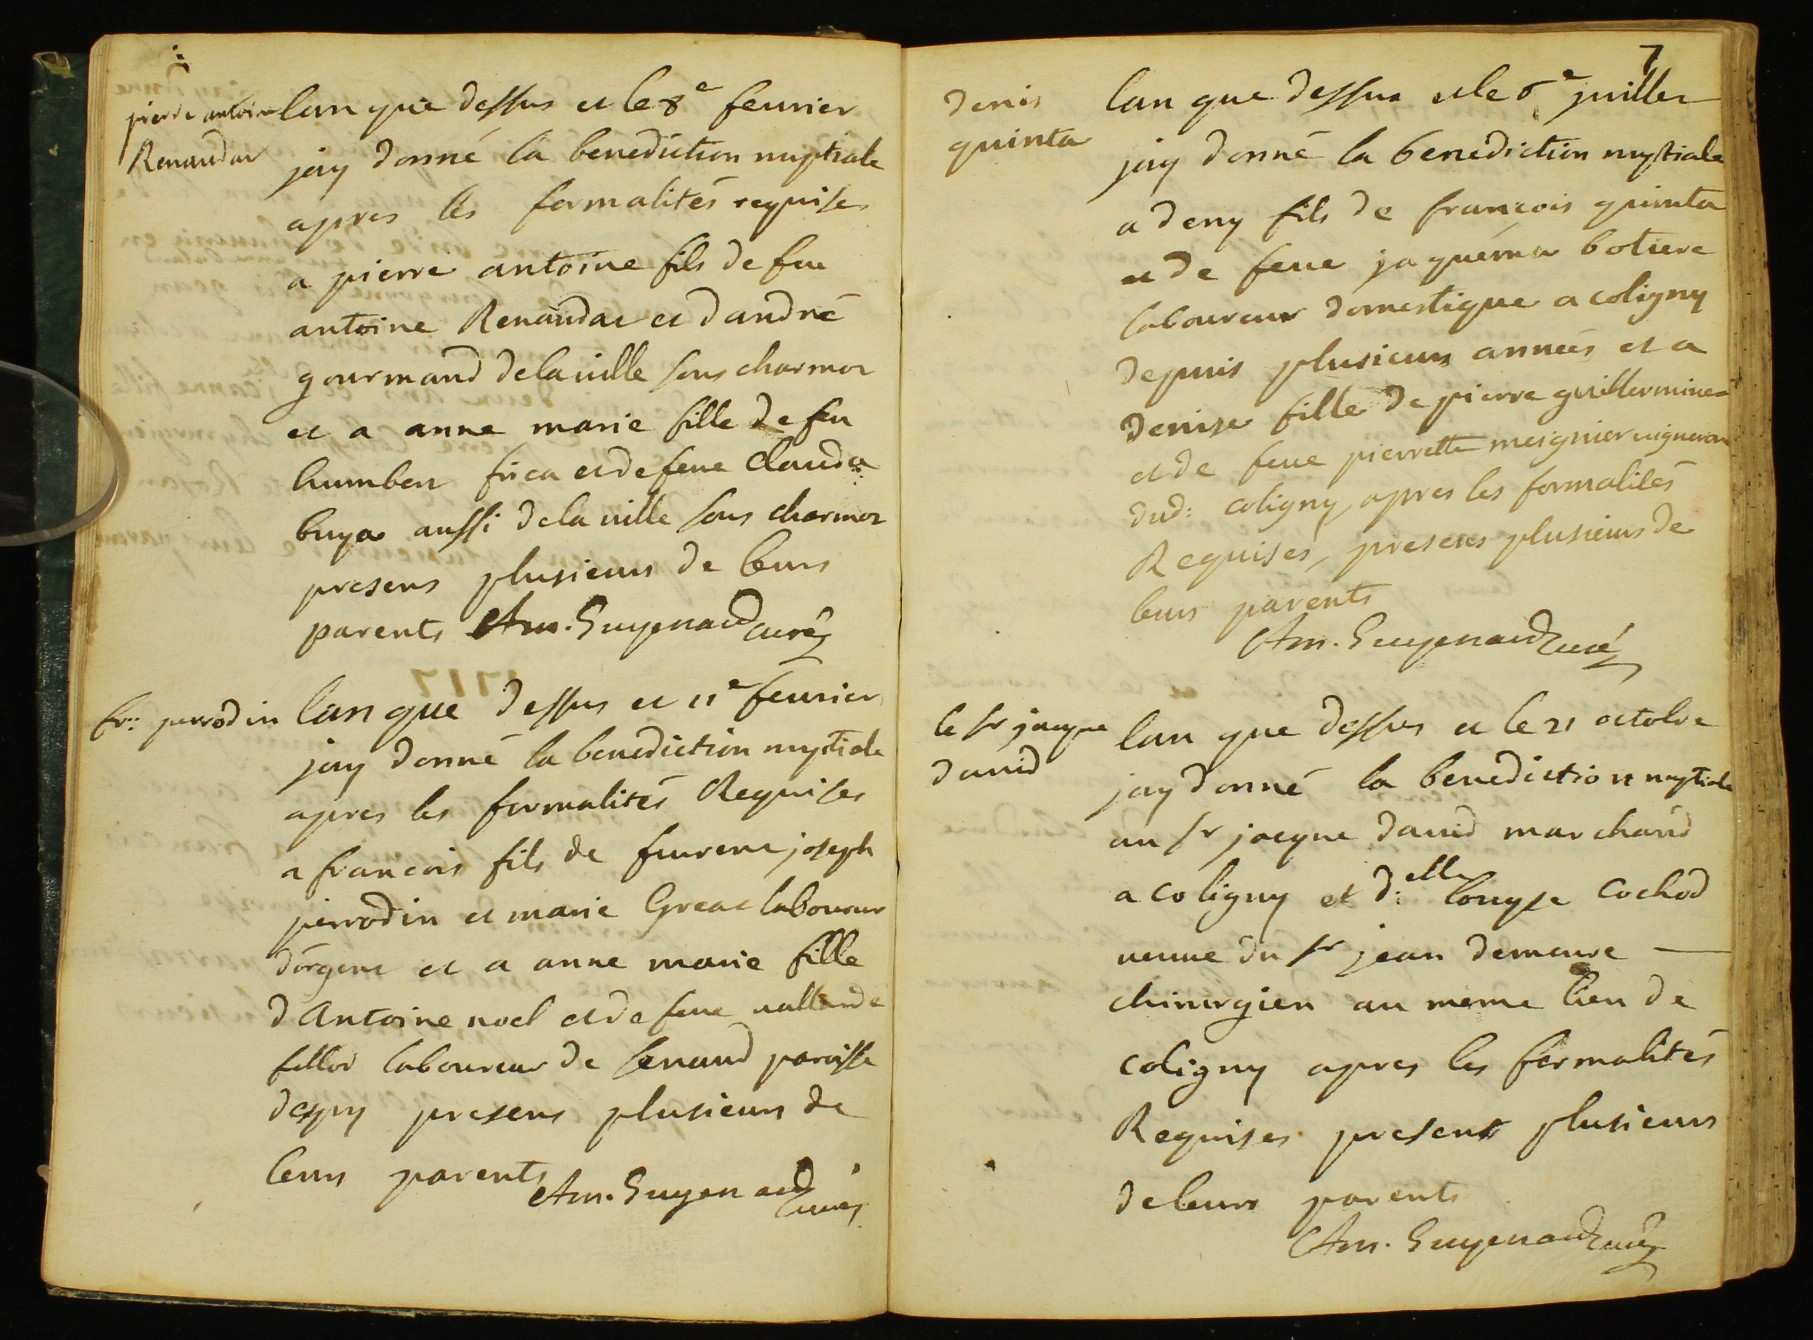 pierre antoine
Renaudat
lan que dessus et le 8e feurier
jay donné la benediction nuptiale
apres les formalités requises
a pierre antoine fils de feu
antoine Renaudat et dandré
gourmand de la uille sous charmot
et a anne marie fille de feu
humbert et de feue Claudа
aussi de la uille sous charmot
presens plusieurs de leurs
parents Am. Guyenard curé
fr: perrodin
lan que dessus et 11e feurier
jay donné la benediction nuptiale
apres les formalités Requises
a francois fils de joseph
perrodin et marie laboureur
et a anne marie fille
d Antoine noel et de feue
laboureur de senaud paroisse
despy presens plusieurs de
leurs parents
Am. Guyenard curé
7
denis
quinta
lan que dessus et le 6e juillet
jay donné la benediction nuptiale
a deny fils de francois quinta
et de feue jaquema botiere
laboureur domestique a coligny
depuis plusieurs années et a
denise fille de pierre guilleminet
et de feue pierrette meignier uigneron
dud: coligny apres les formalités
Requises, presens plusieurs de
leurs parents
Am. Guyenard curé
le sr jaque
dauid
lan que dessus et le 21 octobre
jay donné la benediction nuptiale
au sr jacque dauid marchand
a coligny et d:elle Louyse Cochod
ueuue du sr jean demeure
chirurgien au meme lieu de
coligny apres les formalités
Requises present plusieurs
de leurs parents
Am. Guyenard curé